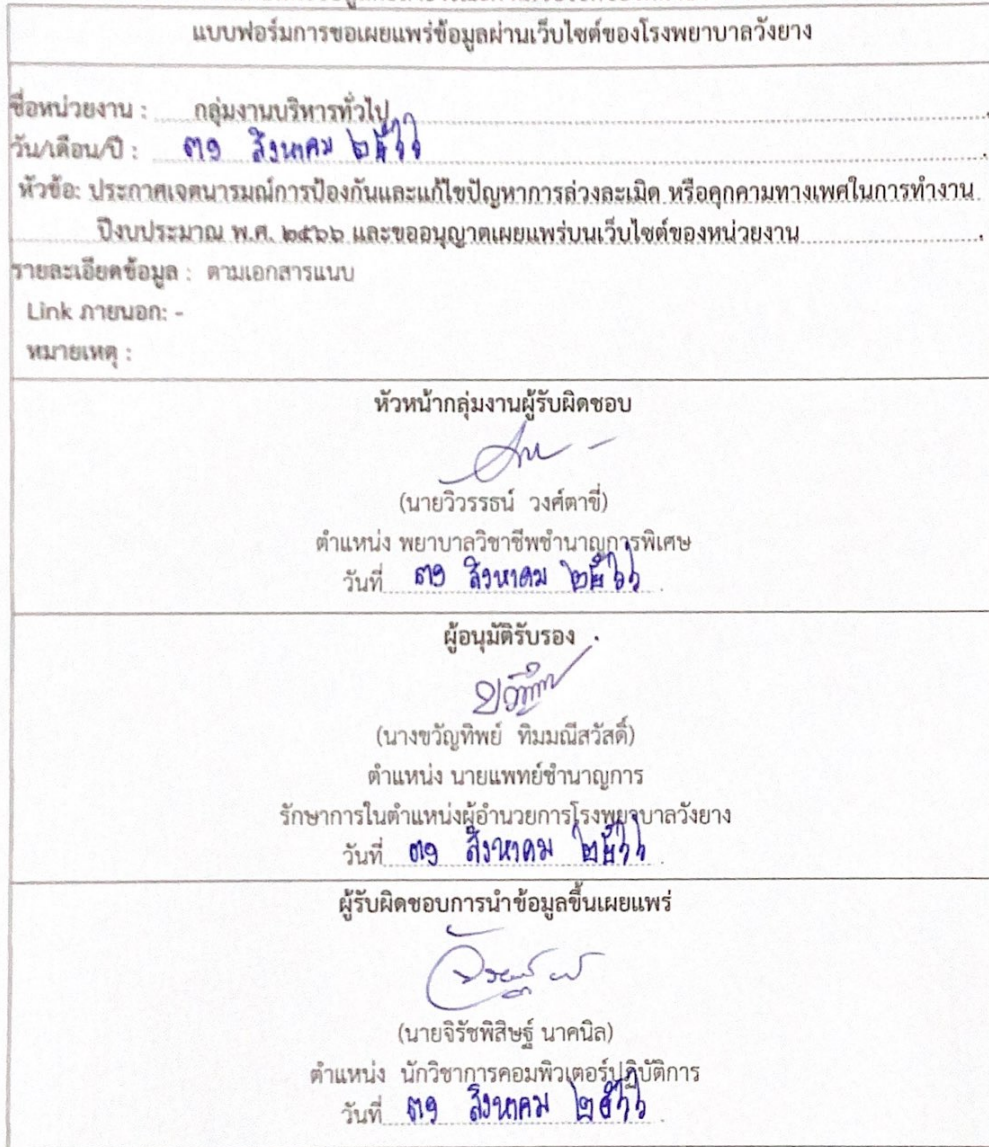 แบบฟอร์มการขอเผยแพร่ข้อมูลผ่านเว็บไซต์ของโรงพยาบาลวังยาง
ชื่อหน่วยงาน : กลุ่มงานบริหารทั่วไป
วัน/เดือน/ปี : ๓๑ สิงหาคม ๒๕๖๖
หัวข้อ: ประกาศเจตนารมณ์การป้องกันและแก้ไขปัญหาการล่วงละเมิด หรือคุกคามทางเพศในการทำงาน
ปีงบประมาณ พ.ศ. ๒๕๖๖ และขออนุญาตเผยแพร่บนเว็บไซต์ของหน่วยงาน
รายละเอียดข้อมูล : ตามเอกสารแนบ
Link ภายนอก: -
หมายเหตุ :
หัวหน้ากลุ่มงานผู้รับผิดชอบ
(นายวิวรรธน์ วงศ์ตาขี่)
ตำแหน่ง พยาบาลวิชาชีพชำนาญการพิเศษ
วันที่ ๓๑ สิงหาคม ๒๕๖๖
ผู้อนุมัติรับรอง
(นางขวัญทิพย์ ทิมมณีสวัสดิ์)
ตำแหน่ง นายแพทย์ชำนาญการ
รักษาการในตำแหน่งผู้อำนวยการโรงพยาบาลวังยาง
วันที่ ๓๑ สิงหาคม ๒๕๖๖
ผู้รับผิดชอบการนำข้อมูลขึ้นเผยแพร่
(นายจิรัชพิสิษฐ์ นาคนิล)
ตำแหน่ง นักวิชาการคอมพิวเตอร์ปฏิบัติการ
วันที่ ๓๑ สิงหาคม ๒๕๖๖